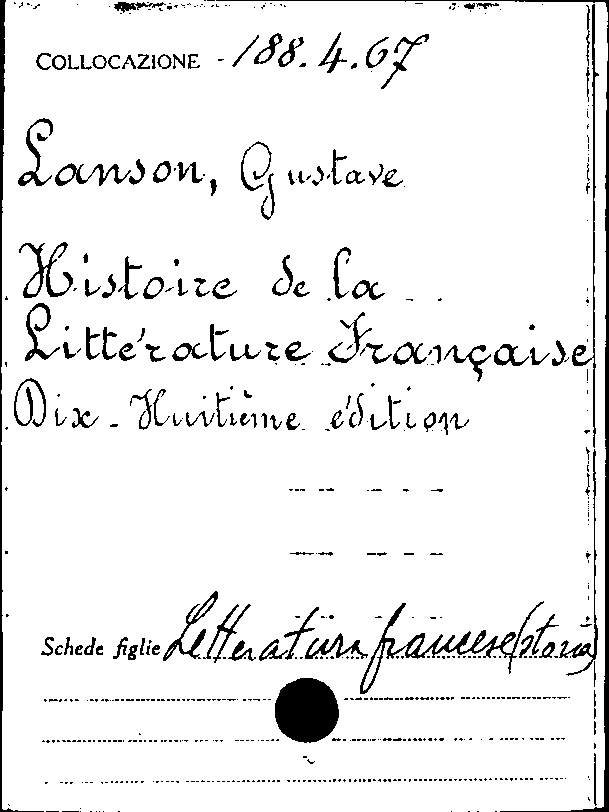 COLLOCAZIONE - 188.4.67
Lanson, Gustave
Histoire de la
Littérature Française
Dix-Huitième édition
Schede figlie Letteratura francese (storia)